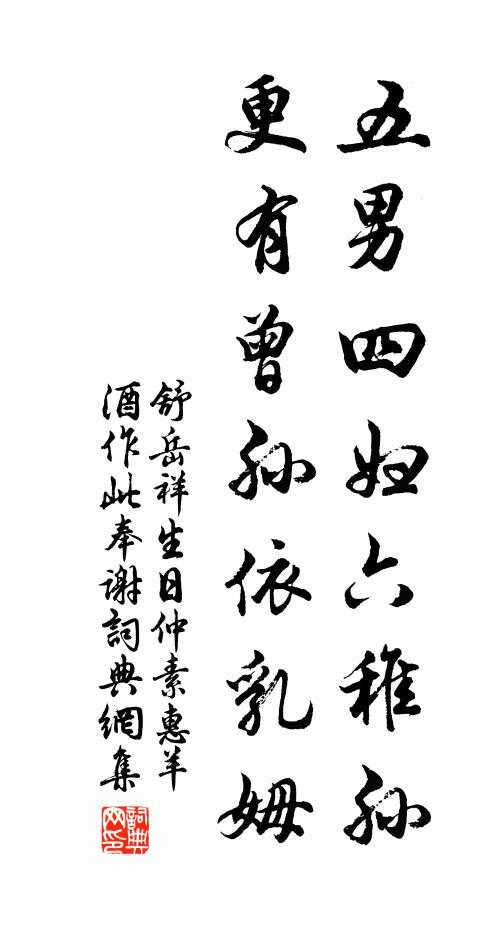 五男四妇六稚孙
更有曾孙依乳姆
舒岳祥生日仲素惠羊
酒作此奉谢詞典網集
詞典
网印